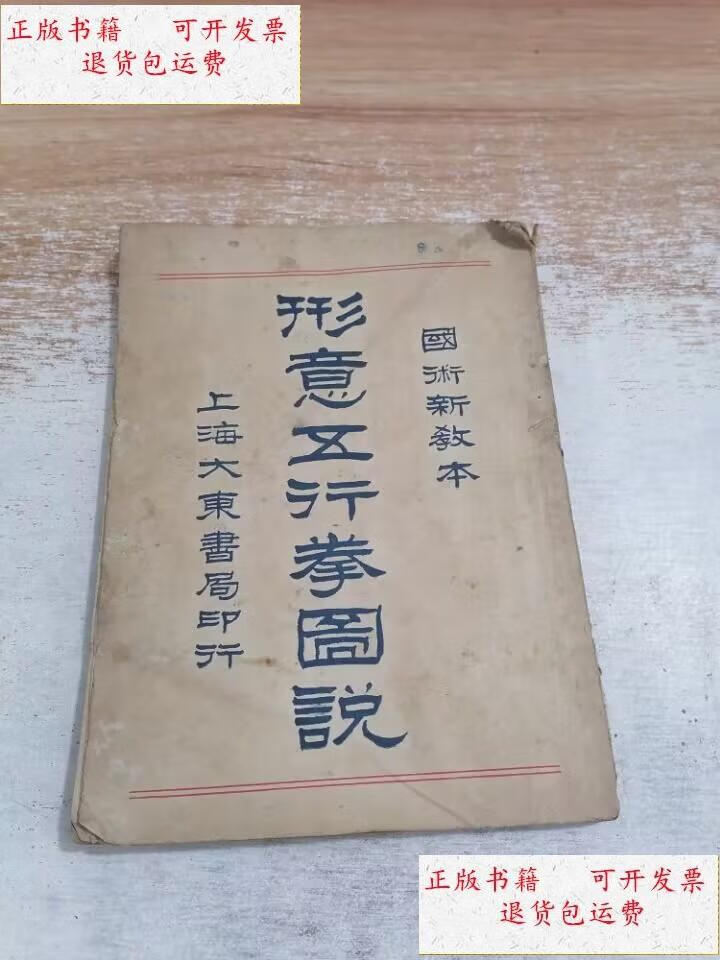 正版书籍 可开发票
退货包运费
國術新教本
形意五行拳圖説
上海大東書局印行
正版书籍 可开发票
退货包运费